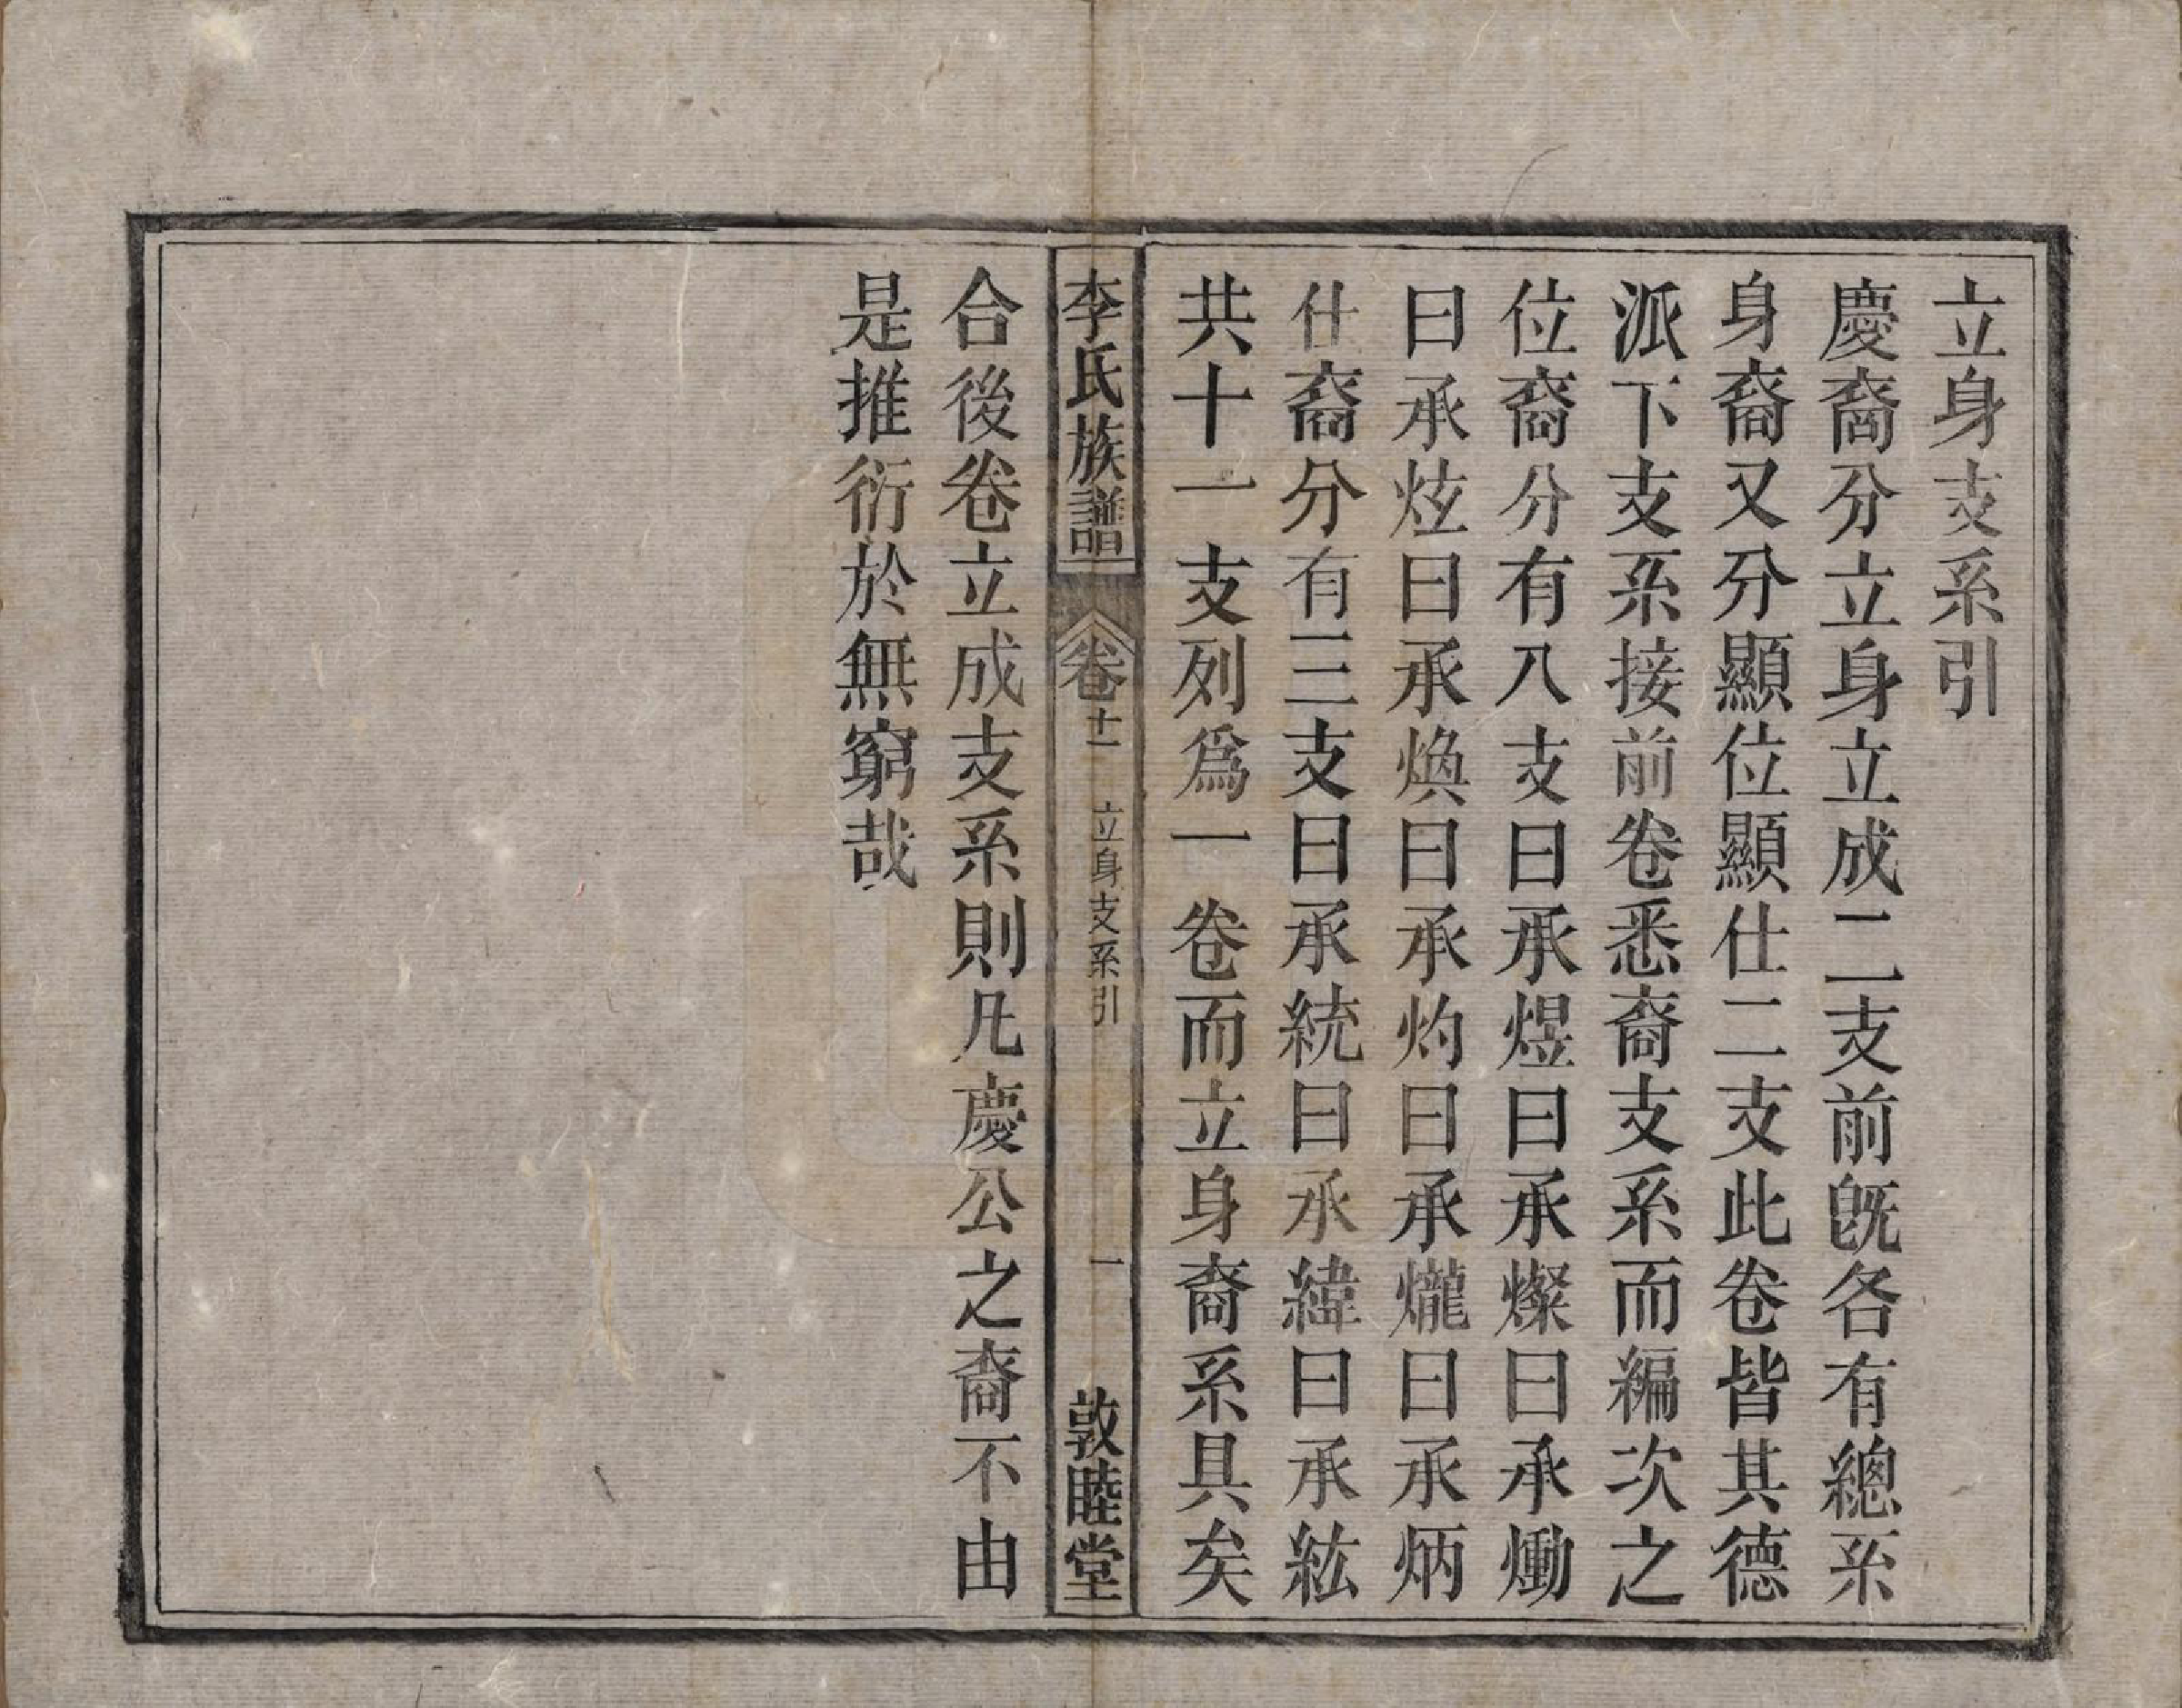 立身支系引
慶裔分立身立成二支前旣各有總系
身裔又分顯位顯仕二支此卷皆其德
派下支系接前卷悉裔支系而編次之
位裔分有八支曰承煜曰承燦曰承㷲
曰承炫曰承煥曰承灼曰承爖曰承炳
仕裔分有三支曰承統曰承緯曰承紘
共十一支列爲一卷而立身裔系具矣
李氏族譜 卷十一 立身支系引 一 敦睦堂
合後卷立成支系則凡慶公之裔不由
是推衍於無窮哉